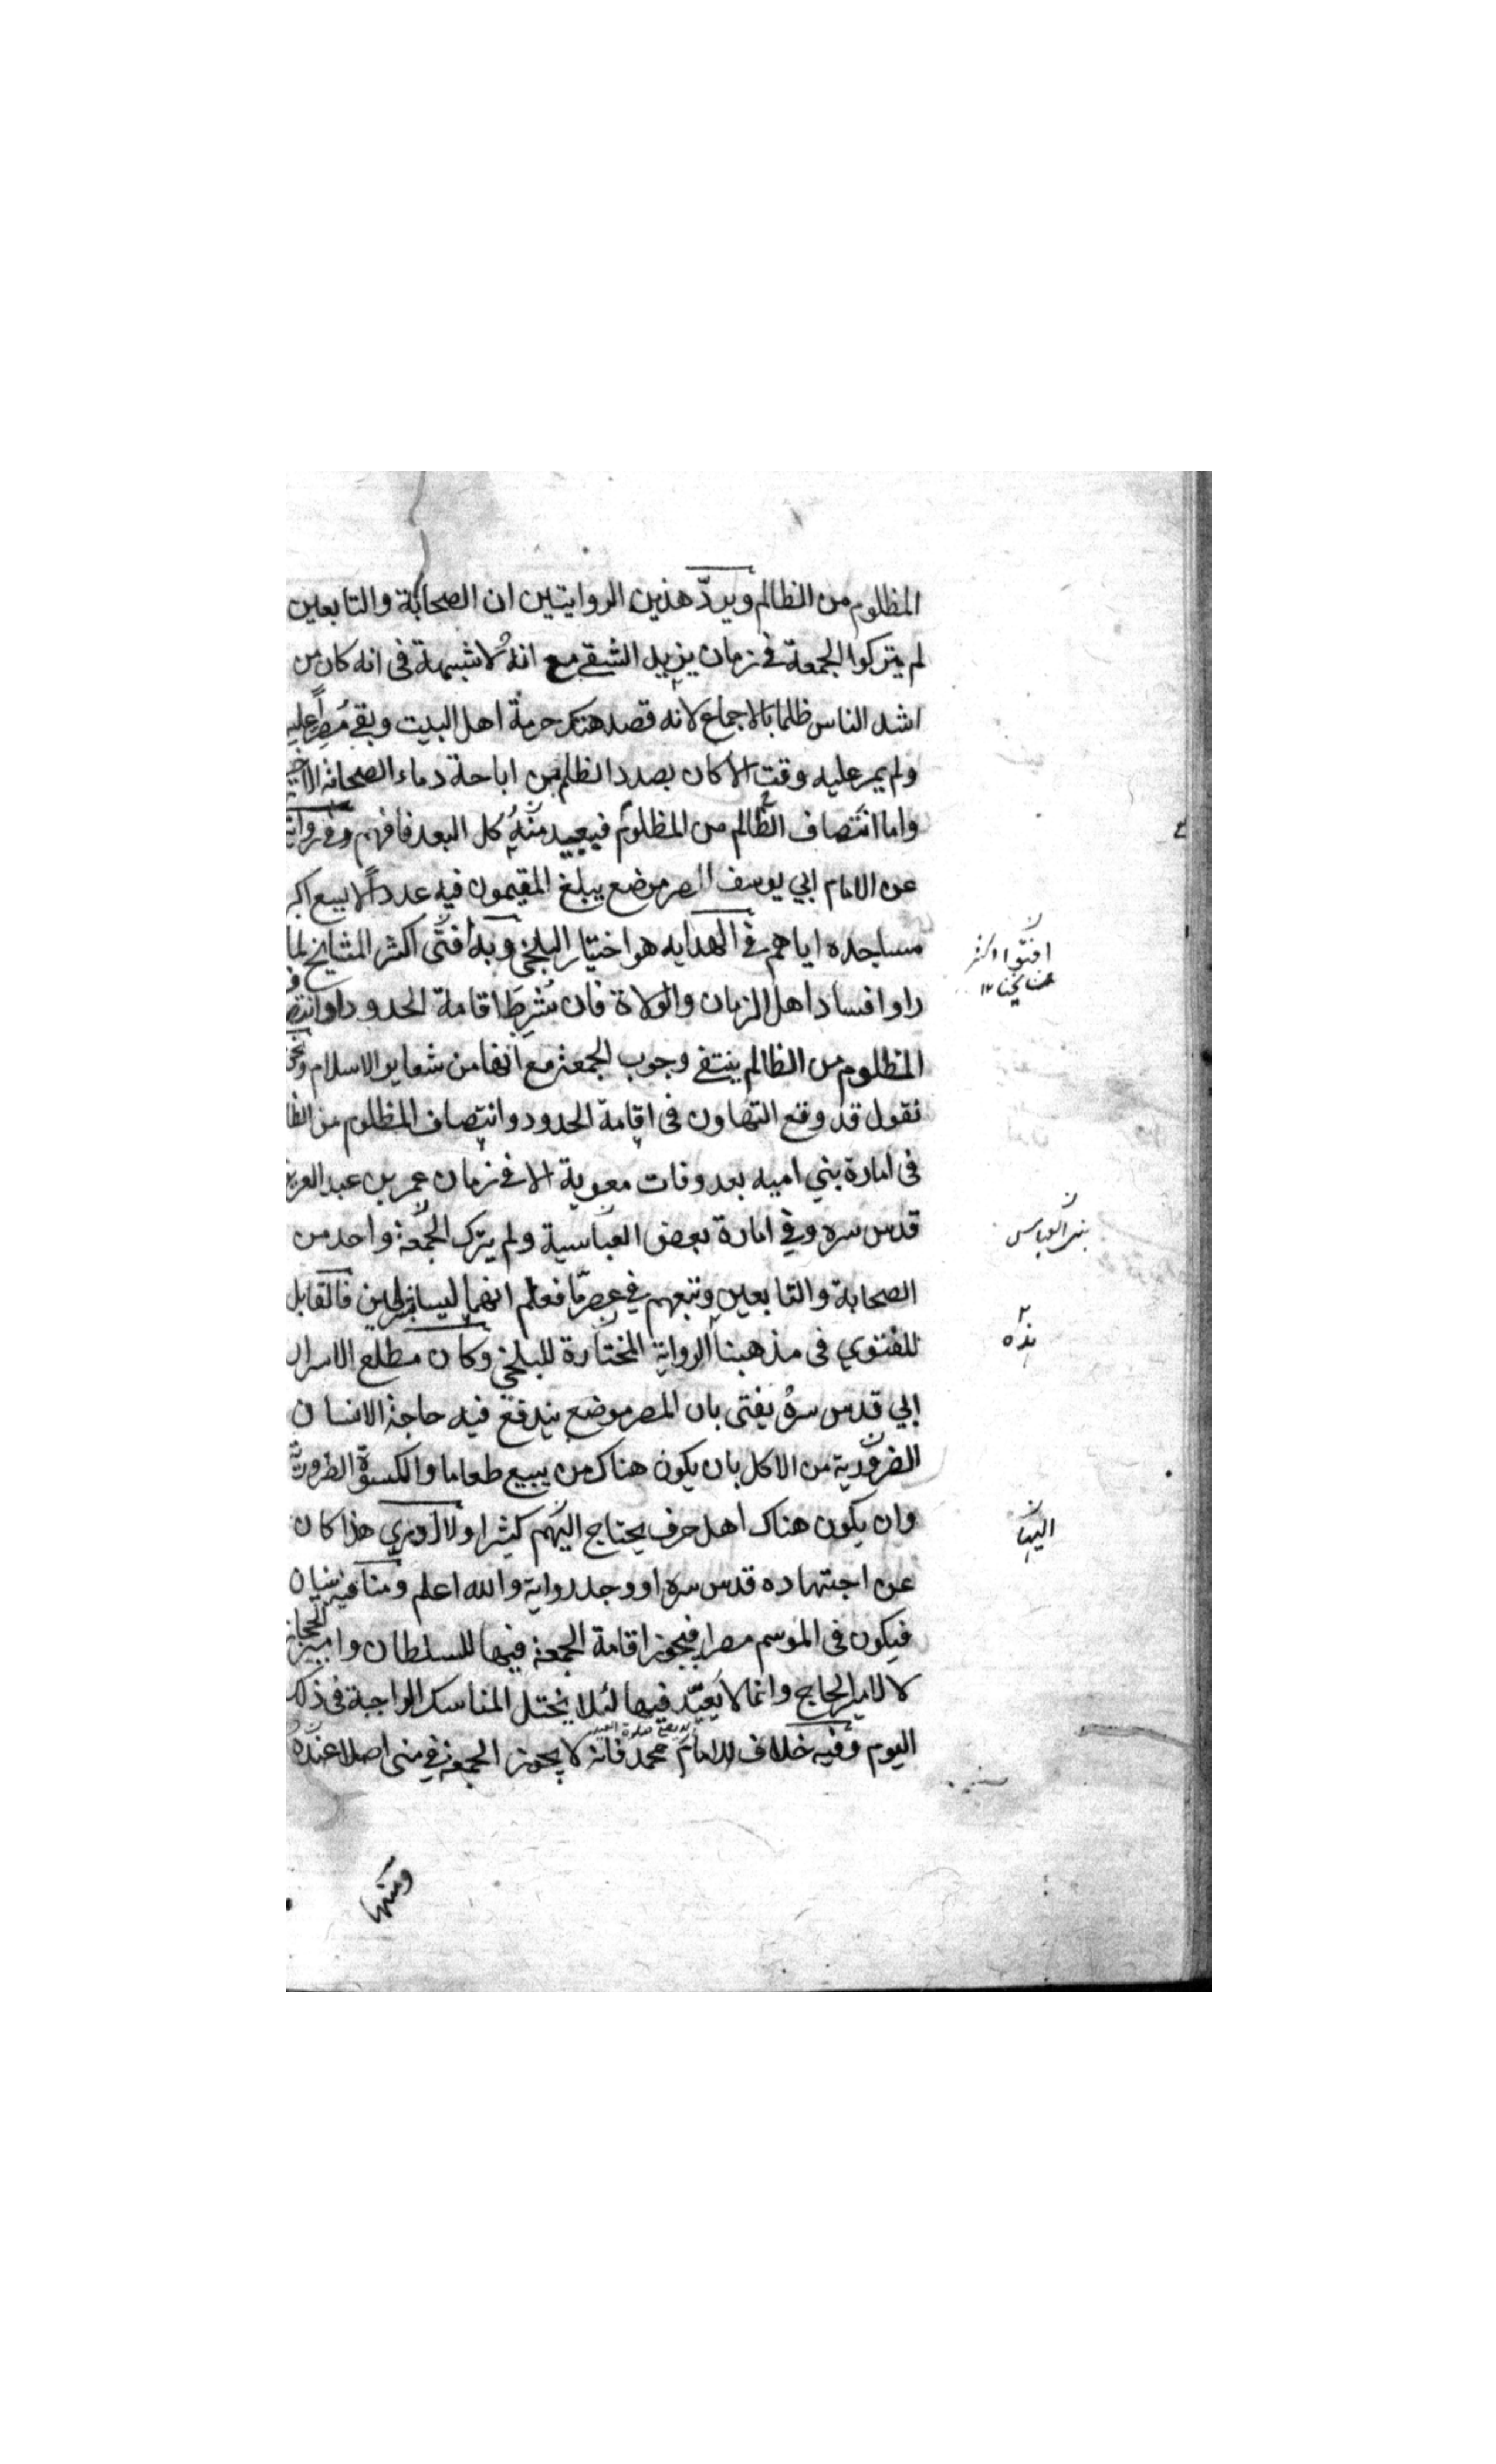 المظلوم من الظالم ويردّ هذين الروايتين ان الصحابة والتابعين
لم يتركوا الجمعة في زمان يزيد الشقي مع انه لا شبهة في انه كان من
اشد الناس ظلما بالاجماع لانه قصد هتك حرمة اهل البيت وبقي مصراً عليه
ولم يمر عليه وقت الا كان بصدد الظلم من اباحة دماء الصحابة
واما انتصاف الظالم من المظلوم فبعيد منه كل البعد فافهم وفي رواية
عن الامام ابي يوسف المصر موضع يبلغ المقيمون فيه عدداً لا يسع اكبر
مساجده اياهم في الهدايه هو اختيار البلخي وبه أفتى اكثر المشايخ لما
راوا فساد اهل الزمان والولاة فان شُرِطَ اقامة الحدود وانتصاف
المظلوم من الظالم ينتفي وجوب الجمعة مع انها من شعاير الاسلام ونحن
نقول قد وقع التهاون في اقامة الحدود وانتصاف المظلوم من الظا
في امارة بني اميه بعد وفات معوية الا في زمان عمر بن عبد العزيز
قدس سره وفي امارة بعض العباسية ولم يترك الجمعة واحد من
الصحابة والتابعين وتبعهم في عصر ما فعلم انهما ليسا بشرطين فالقابل
للفتوي في مذهبنا الرواية المختارة للبلخي وكان مطلع الاسرار
ابي قدس سره يفتى بان المصر موضع يندفع فيه حاجة الانسان
الضرورية من الاكل بان يكون هناك من يبيع طعاما والكسوة الضرورية
وان يكون هناك اهل حرف يحتاج اليهم كثيرا ولا ادري هذا كان
عن اجتهاده قدس سره او وجد رواية والله اعلم ومنا فيه بنيان
فيكون في الموسم مصرا فيجوز اقامة الجمعة فيها للسلطان وامير الحجاز
لا لامير الحاج وانما لا يُعيّد فيها لئلا يختل المناسك الواجبة في ذلك
اليوم وفيه خلاف للامام محمد فانه لا يجوز الجمعة في منى اصلا عنده
افتوا اكثر
مشايخنا ١٢
بني العباس
هذه
اليها
ومنها